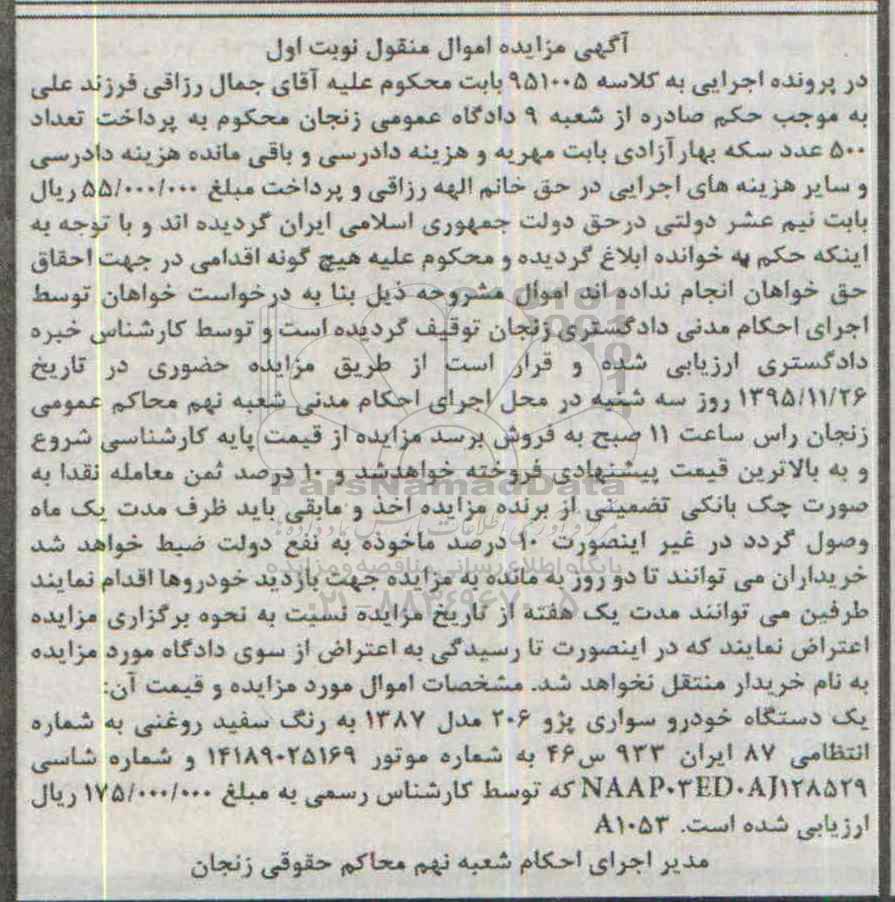 آگهی مزایده اموال منقول نوبت اول
در پرونده اجرایی به کلاسه ۹۵۱۰۰۵ بابت محکوم علیه آقای جمال رزاقی فرزند علی
به موجب حکم صادره از شعبه ۹ دادگاه عمومی زنجان محکوم به پرداخت تعداد
۵۰۰ عدد سکه بهار آزادی بابت مهریه و هزینه دادرسی و باقی مانده هزینه دادرسی
و سایر هزینه های اجرایی در حق خانم الهه رزاقی و پرداخت مبلغ ۵۵/۰۰۰/۰۰۰ ریال
بابت نیم عشر دولتی درحق دولت جمهوری اسلامی ایران گردیده اند و با توجه به
اینکه حکم به خوانده ابلاغ گردیده و محکوم علیه هیچ گونه اقدامی در جهت احقاق
حق خواهان انجام نداده اند اموال مشروحه ذیل بنا به درخواست خواهان توسط
اجرای احکام مدنی دادگستری زنجان توقیف گردیده است و توسط کارشناس خبره
دادگستری ارزیابی شده و قرار است از طریق مزایده حضوری در تاریخ
۱۳۹۵/۱۱/۲۶ روز سه شنبه در محل اجرای احکام مدنی شعبه نهم محاکم عمومی
زنجان راس ساعت ۱۱ صبح به فروش برسد مزایده از قیمت پایه کارشناسی شروع
و به بالاترین قیمت پیشنهادی فروخته خواهدشد و ۱۰ درصد ثمن معامله نقدا به
صورت چک بانکی تضمینی از برنده مزایده اخذ و مابقی باید ظرف مدت یک ماه
وصول گردد در غیر اینصورت ۱۰ درصد ماخوذه به نفع دولت ضبط خواهد شد
خریداران می توانند تا دو روز به مانده به مزایده جهت بازدید خودروها اقدام نمایند
طرفین می توانند مدت یک هفته از تاریخ مزایده نسبت به نحوه برگزاری مزایده
اعتراض نمایند که در اینصورت تا رسیدگی به اعتراض از سوی دادگاه مورد مزایده
به نام خریدار منتقل نخواهد شد. مشخصات اموال مورد مزایده و قیمت آن:
یک دستگاه خودرو سواری پژو ۲۰۶ مدل ۱۳۸۷ به رنگ سفید روغنی به شماره
انتظامی ۸۷ ایران ۹۳۳ س۴۶ به شماره موتور ۱۴۱۸۹۰۲۵۱۶۹ و شماره شاسی
NAAP۰۳ED۰AJ۱۲۸۵۲۹ که توسط کارشناس رسمی به مبلغ ۱۷۵/۰۰۰/۰۰۰ ریال
ارزیابی شده است. A۱۰۵۳
مدیر اجرای احکام شعبه نهم محاکم حقوقی زنجان
ParsNamadData
پایگاه اطلاع رسانی مناقصه و مزایده